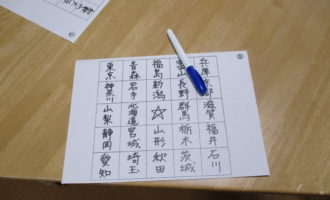 ②
東京 青森 福島 富山 兵庫
神奈川 岩手 新潟 長野 都
山梨 北海道 ☆ 群馬 滋賀
静岡 宮城 山形 栃木 福井
愛知 埼玉 秋田 茨城 石川